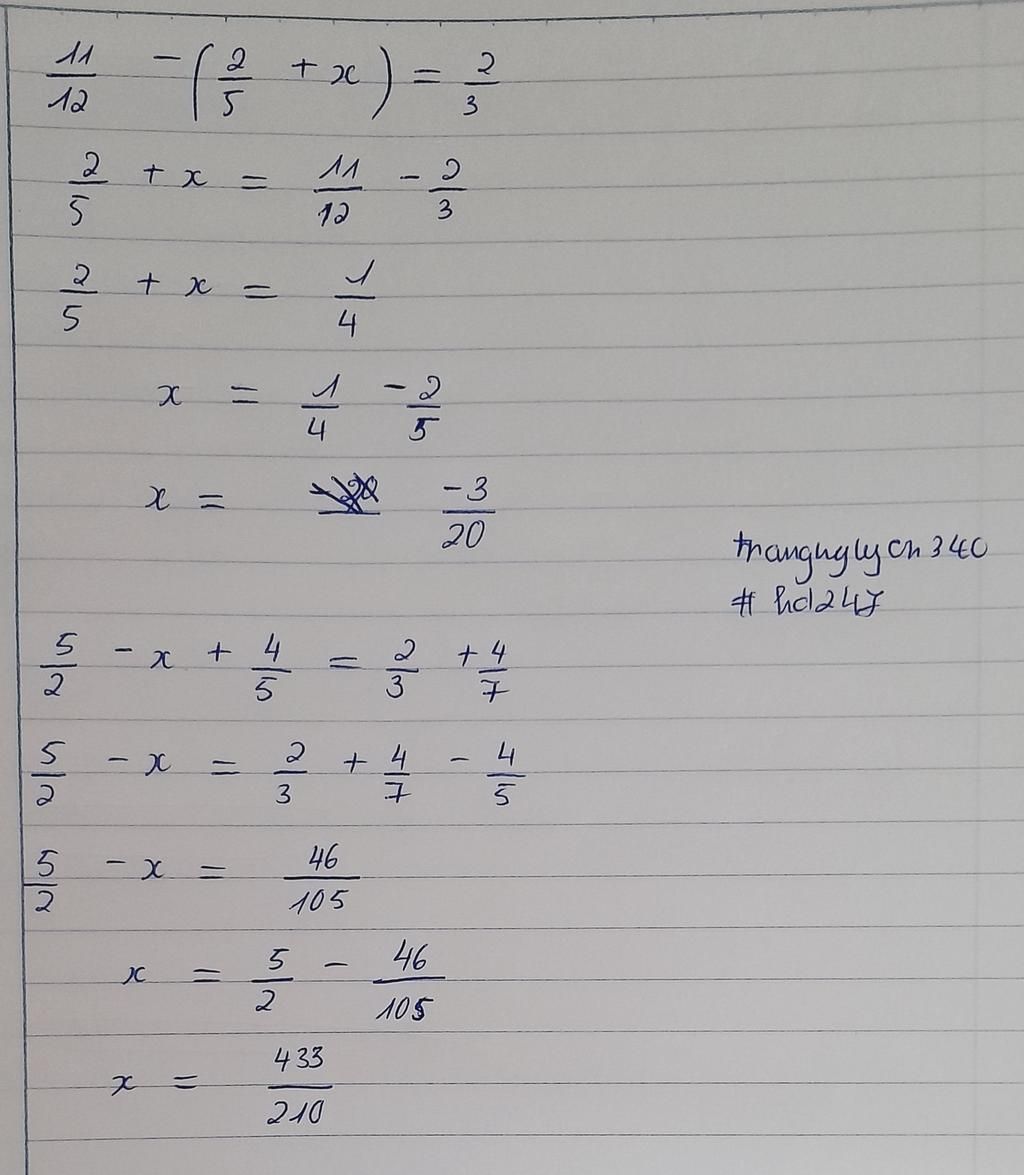 11/12 - (2/5 + x) = 2/3
2/5 + x = 11/12 - 2/3
2/5 + x = 1/4
x = 1/4 - 2/5
x = -3/20
#hd247
5/2 - x + 4/5 = 2/3 + 4/7
5/2 - x = 2/3 + 4/7 - 4/5
5/2 - x = 46/105
x = 5/2 - 46/105
x = 433/210